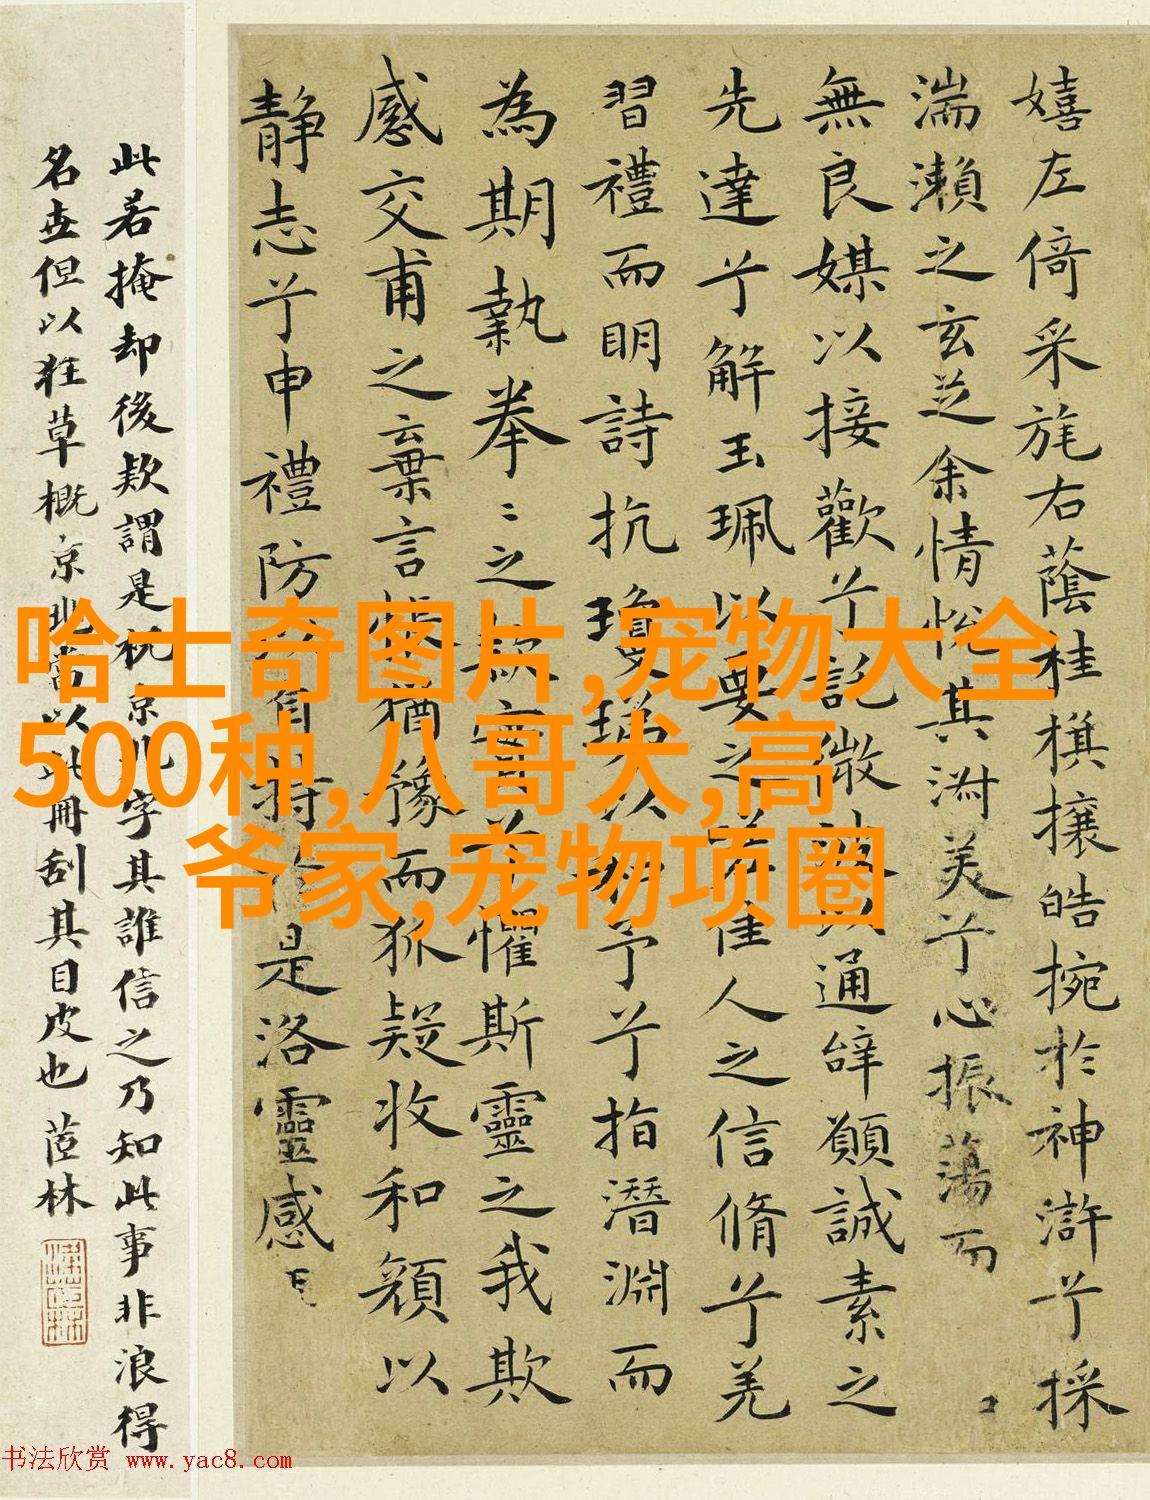 嬉左倚采旄右蔭桂旗攘皓捥於神滸兮採
湍瀬之玄芝余情悅其淑美兮心振蕩而
無良媒以接歡兮託微波以通辭願誠素之
先達兮解玉珮以要之嗟佳人之信脩兮羌
習禮而明詩抗瓊珶以和予兮指潛淵而
為期執拳〻之款實兮懼斯靈之我欺
感交甫之棄言悵猶豫而狐疑收和顏以
静志兮申禮防以自持於是洛靈感
此若掩却後款謂是祝京兆字其誰信之乃知此事非浪得
名世但以狂草概京兆當以此冊刮其目皮也 茝林
哈士奇图片,宠物大全
500种,八哥犬,高
爷家,宠物项圈
书法欣赏 www.yac8.com